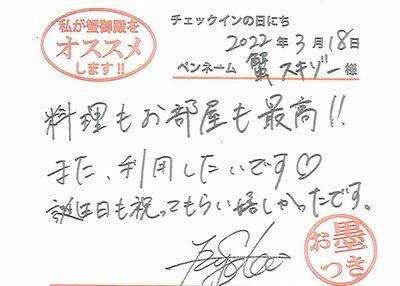 私が蟹御殿を
オススメ
します!!
チェックインの日にち
2022年3月18日
ペンネーム 蟹スキゾー 様
料理もお部屋も最高!!
また、利用したいです♡
誕生日も祝ってもらい嬉しかったです。
お墨
つき